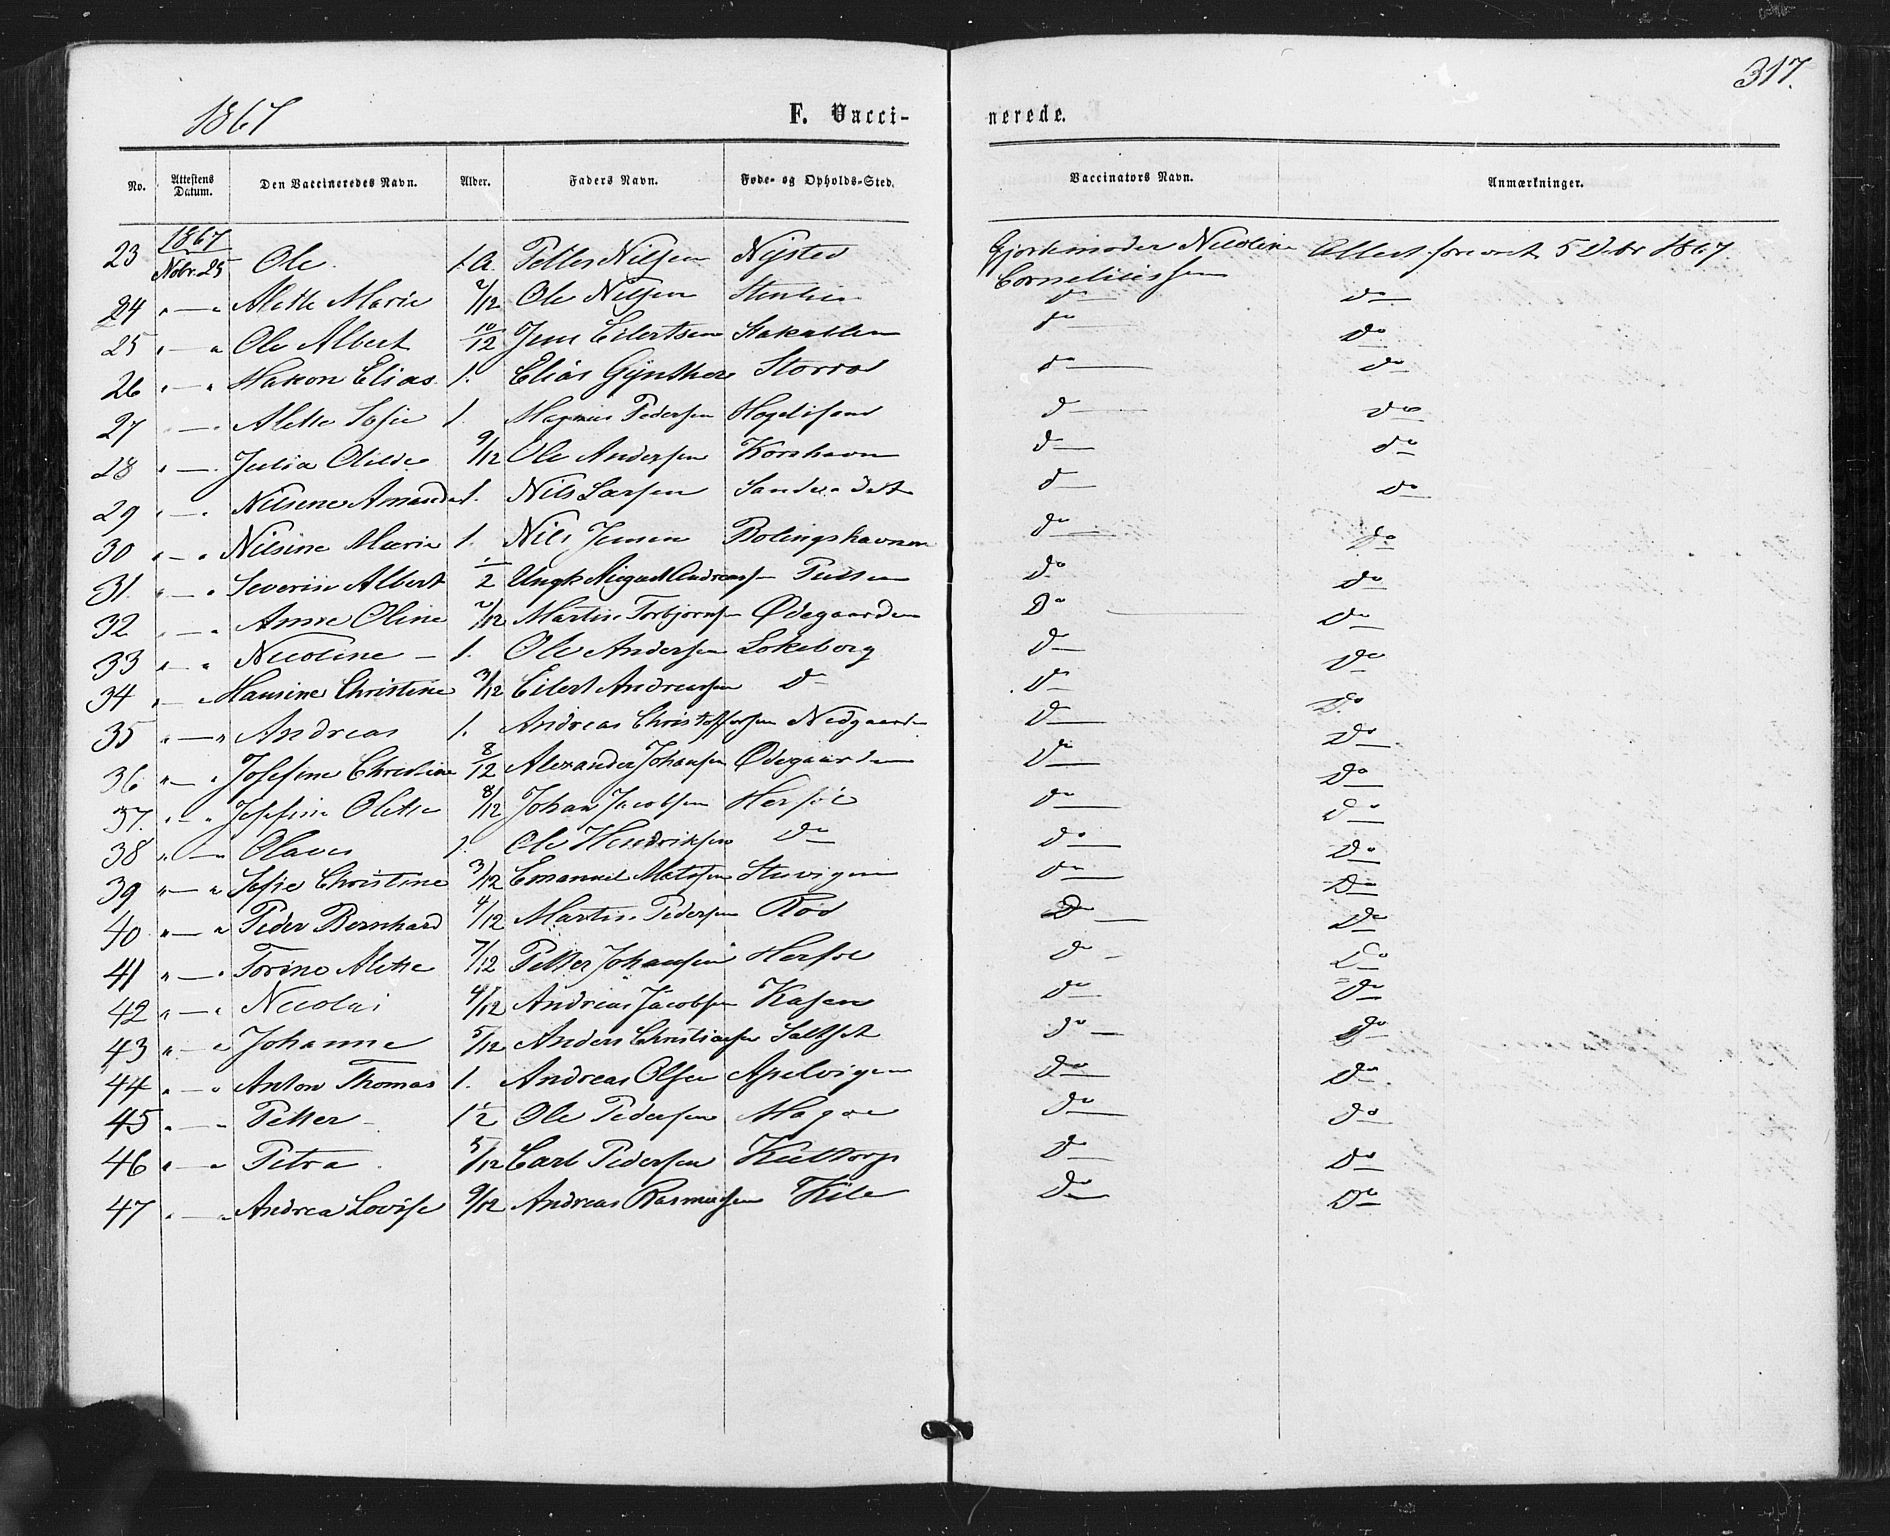 317.
1867 F. Vacci- nerede.
No. Attestens Datum. Den Vaccineredes Navn. Alder. Faders Navn. Føde- og Opholds-Sted. Vaccinators Navn. Anmærkninger.
23 1867 Nobr. 25 Ole 1 A. Petter Nilsen Nysted Gjordemoder Nicoline Corneliussen Attest foreviist 5 Debr 1867
24 " — " Alette Marie 2/12 Ole Nilsen do do
25 " — " Ole Albert 10/12 Jens Eilertsen do do
26 " — " Hakon Elias 1. Elias Gynther do do
27 " — " Alette Sofie 1. Magnus Pedersen do do
28 " — " Julia Olilde 9/12 Ole Andersen Korshavn do do
29 " — " Nilsine Amanda 1. Nils Larsen do do
30 " — " Nilsine Marie 1. Nils Jensen Bolingshavnen do do
31. " — " Severin Albert 1/2 Ungk. August Andreassen do do
32 " — " Anne Oline 2/12 Martin Torbjørnsen Ødegaarden Do do
33 " — " Nicoline — 1. Ole Andersen Lokeborg do do
34 " — " Hansine Christine 3/12 Eilert Andreassen do do do
35 " — " Andreas 1. Andreas Christoffersen Nedgaarden do do
36 " — " Josefine Christine 8/12 Alexander Johansen Ødegaarden do do
37. " — " Josefine Olette 8/12 Johan Jacobsen Hersøe do do
38 " — " Olaves 1. Ole Hendriksen do do do
39 " — " Sofie Christine 3/12 Emanuel Matsen Stuvigen do do
40 " — " Peder Bernhard 4/12 Martin Pedersen Rød Do do
41 " — " Torine Alette 7/12 Petter Johansen Hersøe do do
42 " — " Nicolai 4/12 Andreas Jacobsen Kasen do do
43 " — " Johanne 5/12 Anders Christiansen do do
44 " — " Anton Thomas 1. Andreas Olsen Apelvigen do do
45 " — " Petter 1 1/2 Ole Pedersen Magøe do do
46 " — " Petra 5/12 Carl Pedersen do do
47 " — " Andrea Lovise 9/12 Andreas Rasmussen Kile do Do